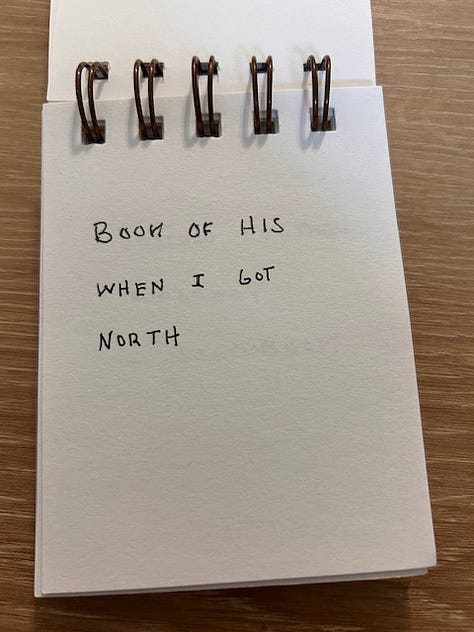 BOOK OF HIS
WHEN I GOT
NORTH